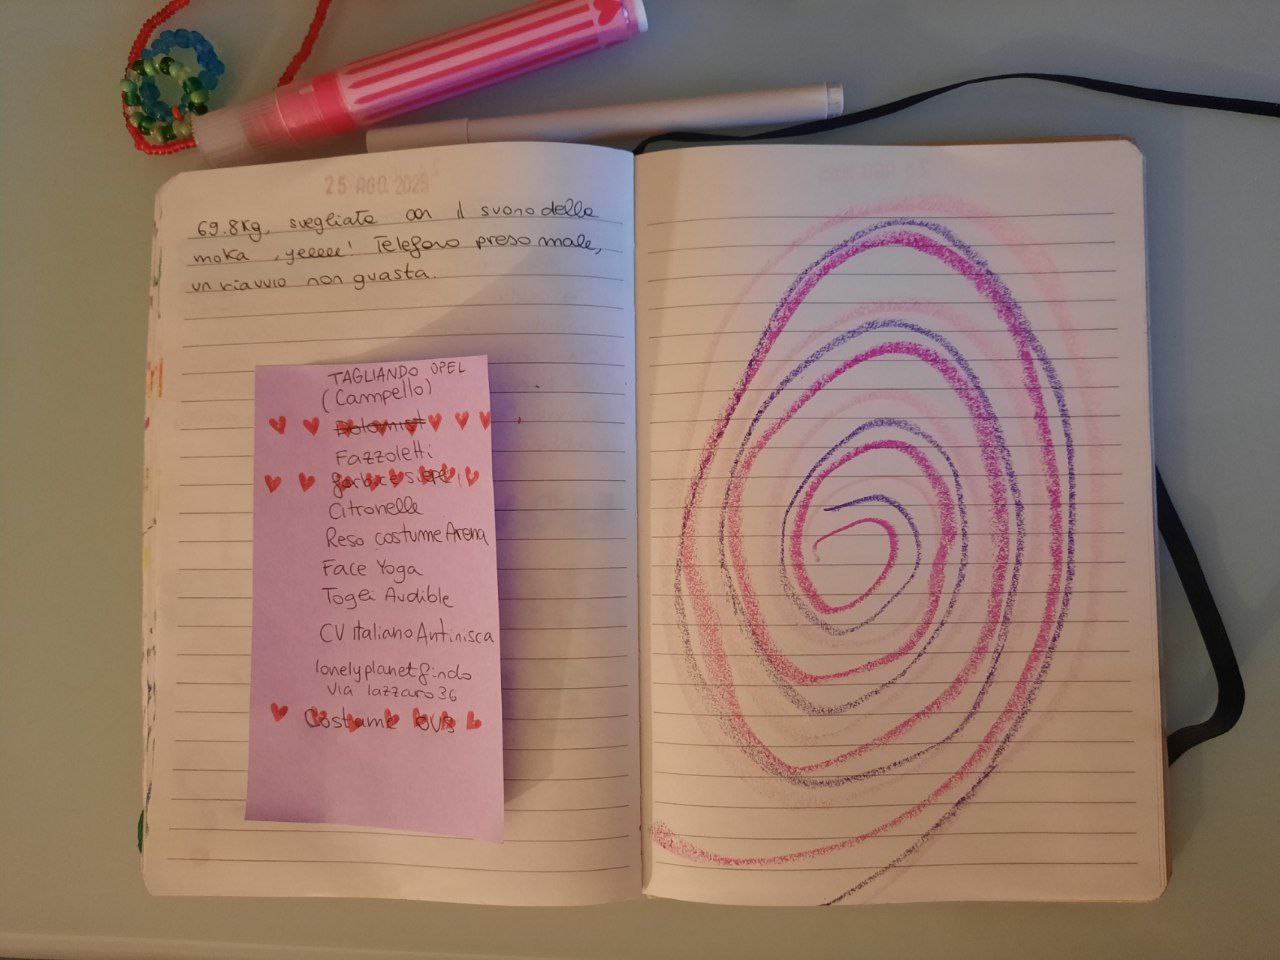 25 AGO. 2025
69.8Kg, svegliata con il suono della
moka, yeeeee! Telefono preso male,
un riavvio non guasta.
TAGLIANDO OPEL
(Campello)
Fazzoletti
Citronella
Reso costume Arena
Face Yoga
Togli Audible
CV Italiano Antinisca
lonelyplanet findo
via lazzaro 36
Costume OVS